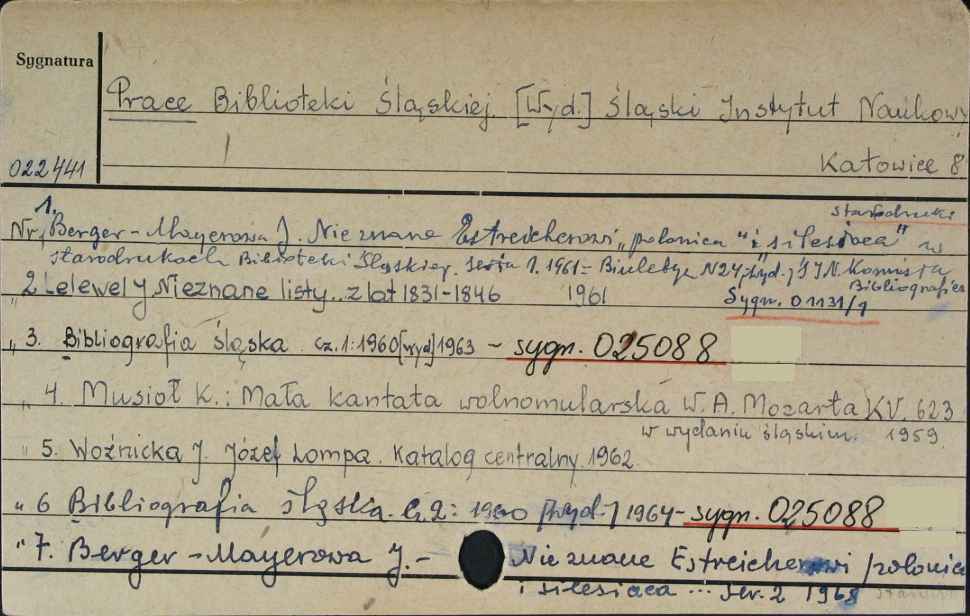 Sygnatura
Prace Biblioteki Śląskiej. [Wyd.] Śląski Instytut Naukowy
022441
Katowice 8
starodruki
Nr 1. Berger-Mayerowa J. Nieznane Estreicherowi „polonica" i silesiaca" w
starodrukach Biblioteki Śląskiej. Seria 1. 1961 = Biuletyn N24, [wyd.] ŚIN. Komisja
Bibliografien
„ 2 Lelewel J Nieznane listy.. z lat 1831-1846 1961 Sygn. 01131/1
„ 3. Bibliografia śląska. cz. 1: 1960 [wyd] 1963 - sygn. 025088
„ 4. Musioł K.: Mała kantata wolnomularska W. A. Mozarta KV. 623
w wydaniu śląskim. 1959
" 5. Woźnicka J. Józef Lompa. Katalog centralny. 1962
" 6 Bibliografia śląska. Cz. 2: [wyd.] 1964 - sygn. 025088
" 7. Berger-Mayerowa J. - Nieznane Estreicherowi polonica
i silesiaca ... ser. 2 1968